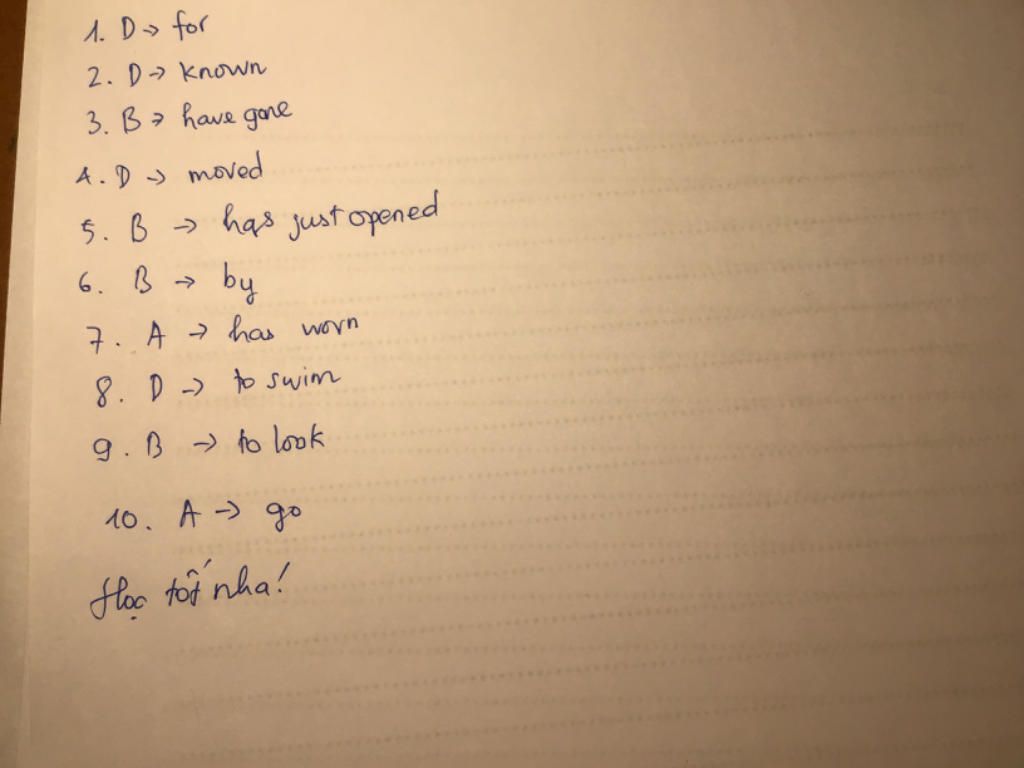 1. D → for
2. D → known
3. B → have gone
4. D → moved
5. B → has just opened
6. B → by
7. A → has worn
8. D → to swim
9. B → to look
10. A → go
Học tốt nha!